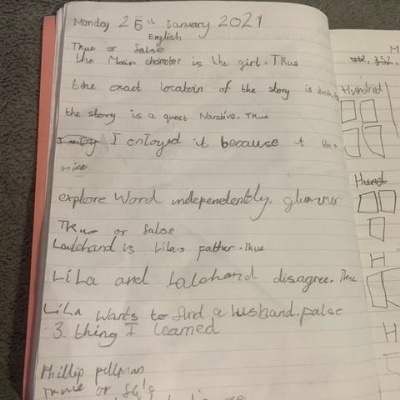 Monday 25th January 2021
English
True or false
the Main character is the girl. True
the exact location of the story is
the story is a quest Narative. True
I enjoyed it because it
nice
explore Word independently. glimmer
True or false
Lalchand is Lila's father. True
LiLa and Lalchand disagree. True
LiLa wants to find a husband. false
3 thing I learned
Phillip pullman
True or false
M
Hundred
Hund
H
H